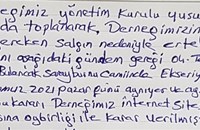 eğimiz yönetim Kurulu yusu
da toplanarak, Derneğimizin
ereken Salgın nedeniyle ertel
nı aşağıdaki gündem gereği
Bulancak Saraybunu Camiinde Ekseriy
muz 2021 pazar günü aynıyer ve ay
ukararı Derneğimiz internet Site
sına oybirliği ile karar verilmiş